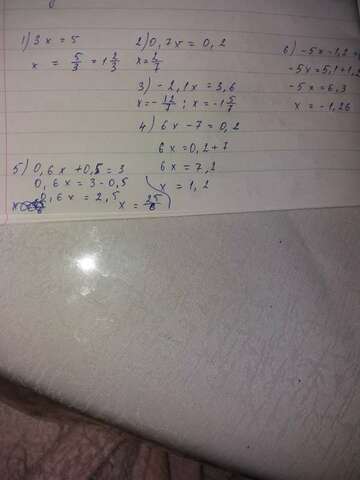 1) 3x = 5
x = 5/3 = 1 2/3
2) 0,7x = 0,2
x = 2/7
3) -2,1x = 3,6
x = -12/7 ; x = -1 5/7
4) 6x - 7 = 0,2
6x = 0,2 + 7
6x = 7,2
x = 1,2
5) 0,6x + 0,5 = 3
0,6x = 3 - 0,5
0,6x = 2,5
x = 25/6
6) -5x - 1,2 =
-5x = 5,1 + 1,2
-5x = 6,3
x = -1,26